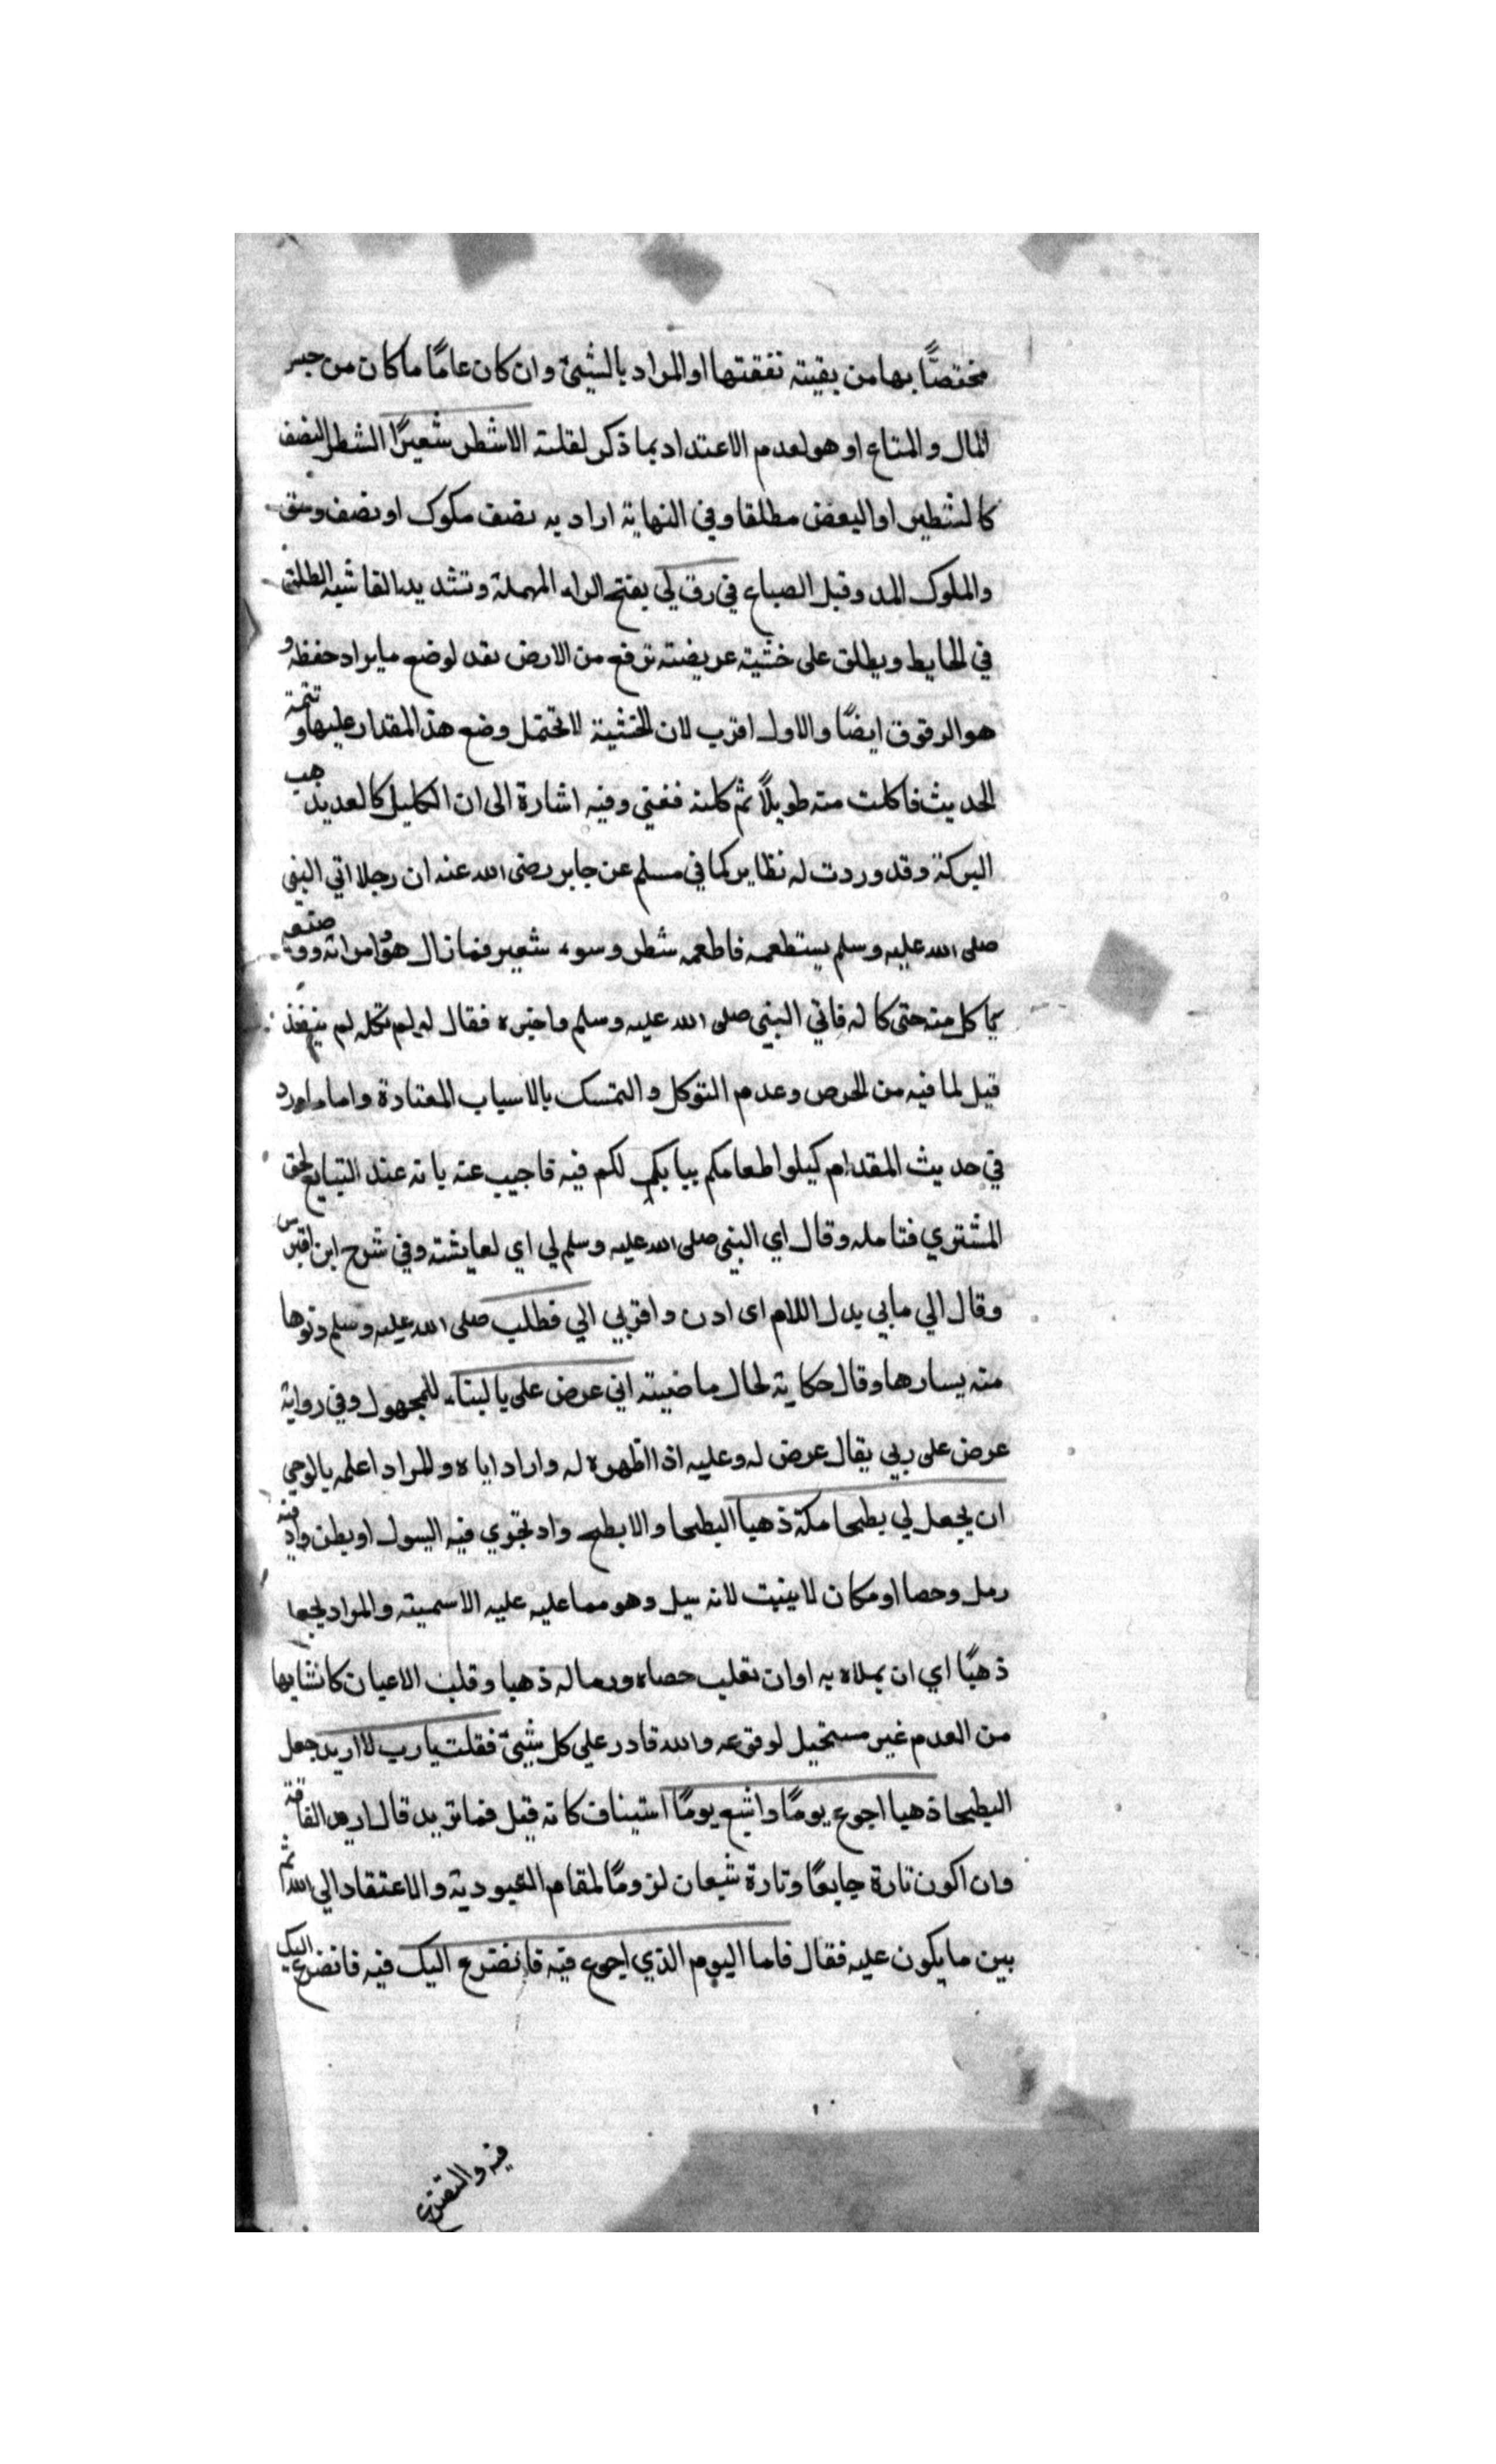 مختصًّا بها من بقيته نفقتها او المراد بالشيئ وان كان عامًا ما كان من جنس
المال والمتاع او هو لعدم الاعتداد بما ذكر لقلته الا شطر شعيرًا الشطر النصف
كالشطير او البعض مطلقا وفي النهاية اراد به نصف مكوك او نصف وسق
والملوك المد وقيل الصباع في رق لي بفتح الراء المهملة وتشديد القا شبه الطلق
في الحايط ويطلق على خشبة عريضته ترفع من الارض تعد لوضع ما يراد حفظه و
هو الرقوق ايضًا والاول اقرب لان الخشبة لا تحتمل وضع هذ المقدار عليها و تتمة
الحديث فاكلت منه طويلًا ثم كلته ففني وفيه اشارة الى ان الكليل كالعد يذهب
البركة وقد وردت له نظاير كما في مسلم عن جابر رضى الله عنه ان رجلا اتي النبي
صلى الله عليه وسلم يستطعمه فاطعمه شطر وسوء شعير فما زال هو وامراته ووصنعه
ياكل منه حتى كاله فاتي النبي صلى الله عليه وسلم واخبره فقال له لو لم تكله لم ينفذ
قيل لما فيه من الحرص وعدم التوكل والتمسك بالاسباب المعتادة واما ما ورد
في حديث المقدام كيلوا طعامكم يبابكم لكم فيه فاجيب عنه بانه عند التبايع لحق
المشتري فتامله وقال اي النبي صلى الله عليه وسلم لي اي لعايشته وفي شرح ابن اقبرس
وقال الي ما بي بدل اللام اى ادن واقربي الي فطلب صلى الله عليه وسلم دنوها
منه يسارها وقال حكاية لحال ماضيته اني عرض على بالبناء للمجهول وفي رواية
عرض على ربي يقال عرض له وعليه اذا اظهره له واراد اياه والمراد اعلمه بالوحي
ان يجعل لي بطحا مكة ذهبا البطحا والابطح واد تجوي فيه السول او بطن واد فيه
رمل وحصا او مكان لا ينبت لانه سيل وهو مما عليه عليه الاسميته والمراد بجعلها
ذهبًا اي ان يملاه به او ان تقلب حصاه ورماله ذهبا وقلب الاعيان كانشايها
من العدم غير مستحيل لوقوعه والله قادر علي كل شيئ فقلت يا رب لا اريد جعل
البطحا ذهبا اجوع يومًا واشبع يومًا استيناف كانه قيل فما تريد قال اريد الفاقة
وان اكون تارة جايعًا وتارة شبعان لزومًا لمقام العبودية والاعتقاد الي الله ثم
بين ما يكون عليه فقال فاما اليوم الذي اجوع فيه فاتضرع اليك فيه فاتضرع اليك
فيه والتضرع